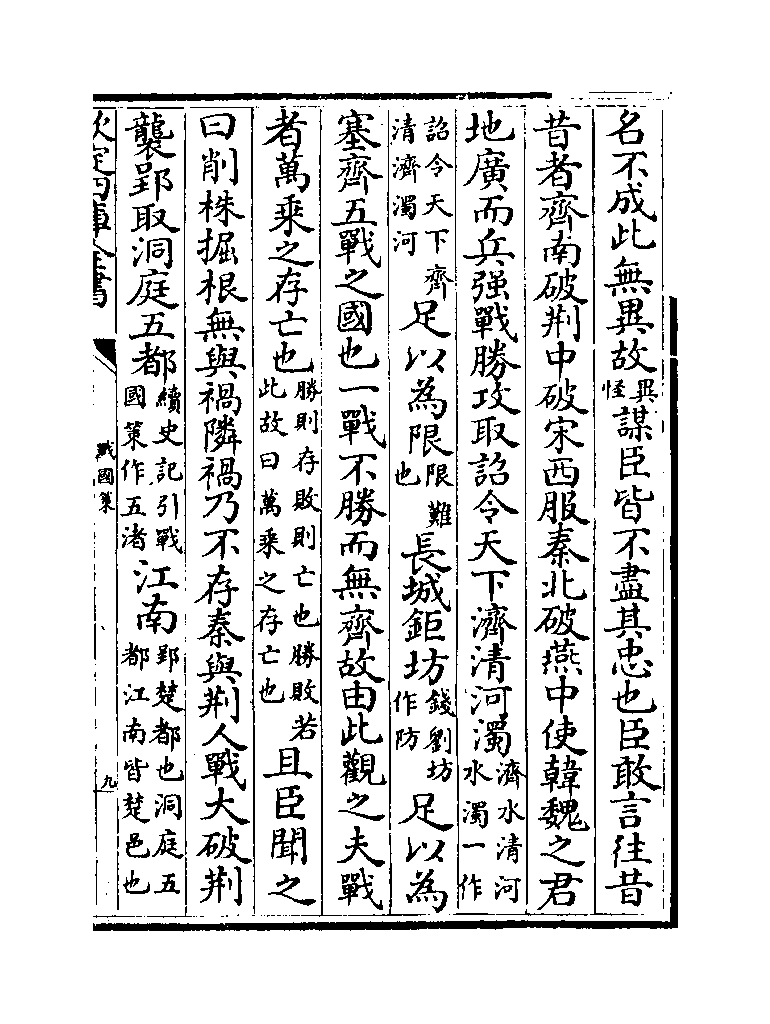 名不成此無異故異怪謀臣皆不盡其忠也臣敢言往昔
昔者齊南破荆中破宋西服秦北破燕中使韓魏之君
地廣而兵强戰勝攻取詔令天下濟清河濁濟水清河水濁一作
詔令天下齊清濟濁河足以為限限難也長城鉅坊錢劉坊作防足以為
塞齊五戰之國也一戰不勝而無齊故由此觀之夫戰
者萬乗之存亡也勝則存敗則亡也勝敗若此故曰萬乗之存亡也且臣聞之
曰削株掘根無與禍隣禍乃不存秦與荆人戰大破荆
襲郢取洞庭五都續史記引戰國策作五渚江南郢楚都也洞庭五都江南皆楚邑也
欽定四庫全書
戰國策
九